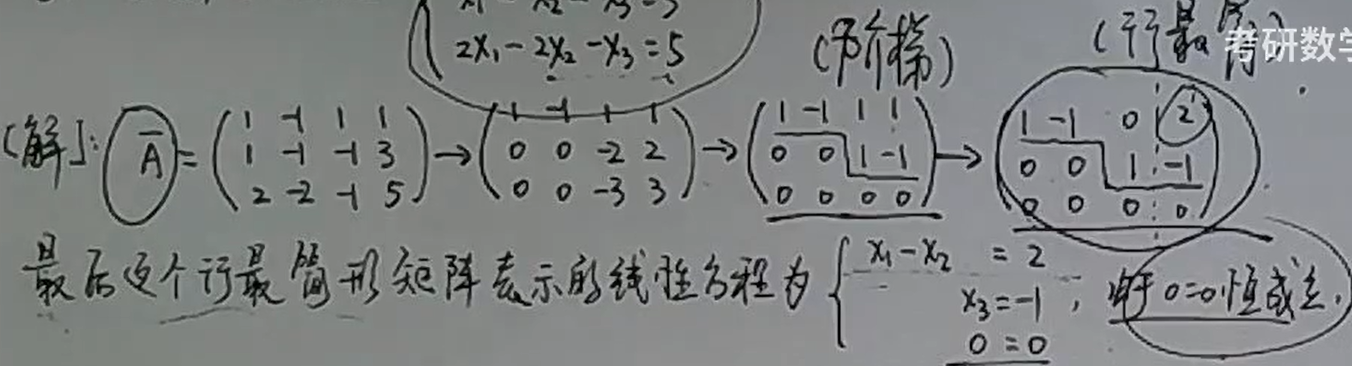 x₁ - x₂ - x₃ = 3
2x₁ - 2x₂ - x₃ = 5
(行阶梯) (行最简)
考研数学
[解]: Ā = (1 -1 1 1; 1 -1 -1 3; 2 -2 -1 5) → (1 -1 1 1; 0 0 -2 2; 0 0 -3 3) → (1 -1 1 1; 0 0 1 -1; 0 0 0 0) → (1 -1 0 2; 0 0 1 -1; 0 0 0 0)
最后这个行最简形矩阵表示的线性方程为 { x₁ - x₂ = 2
x₃ = -1 ; 由于0=0恒成立,
0 = 0